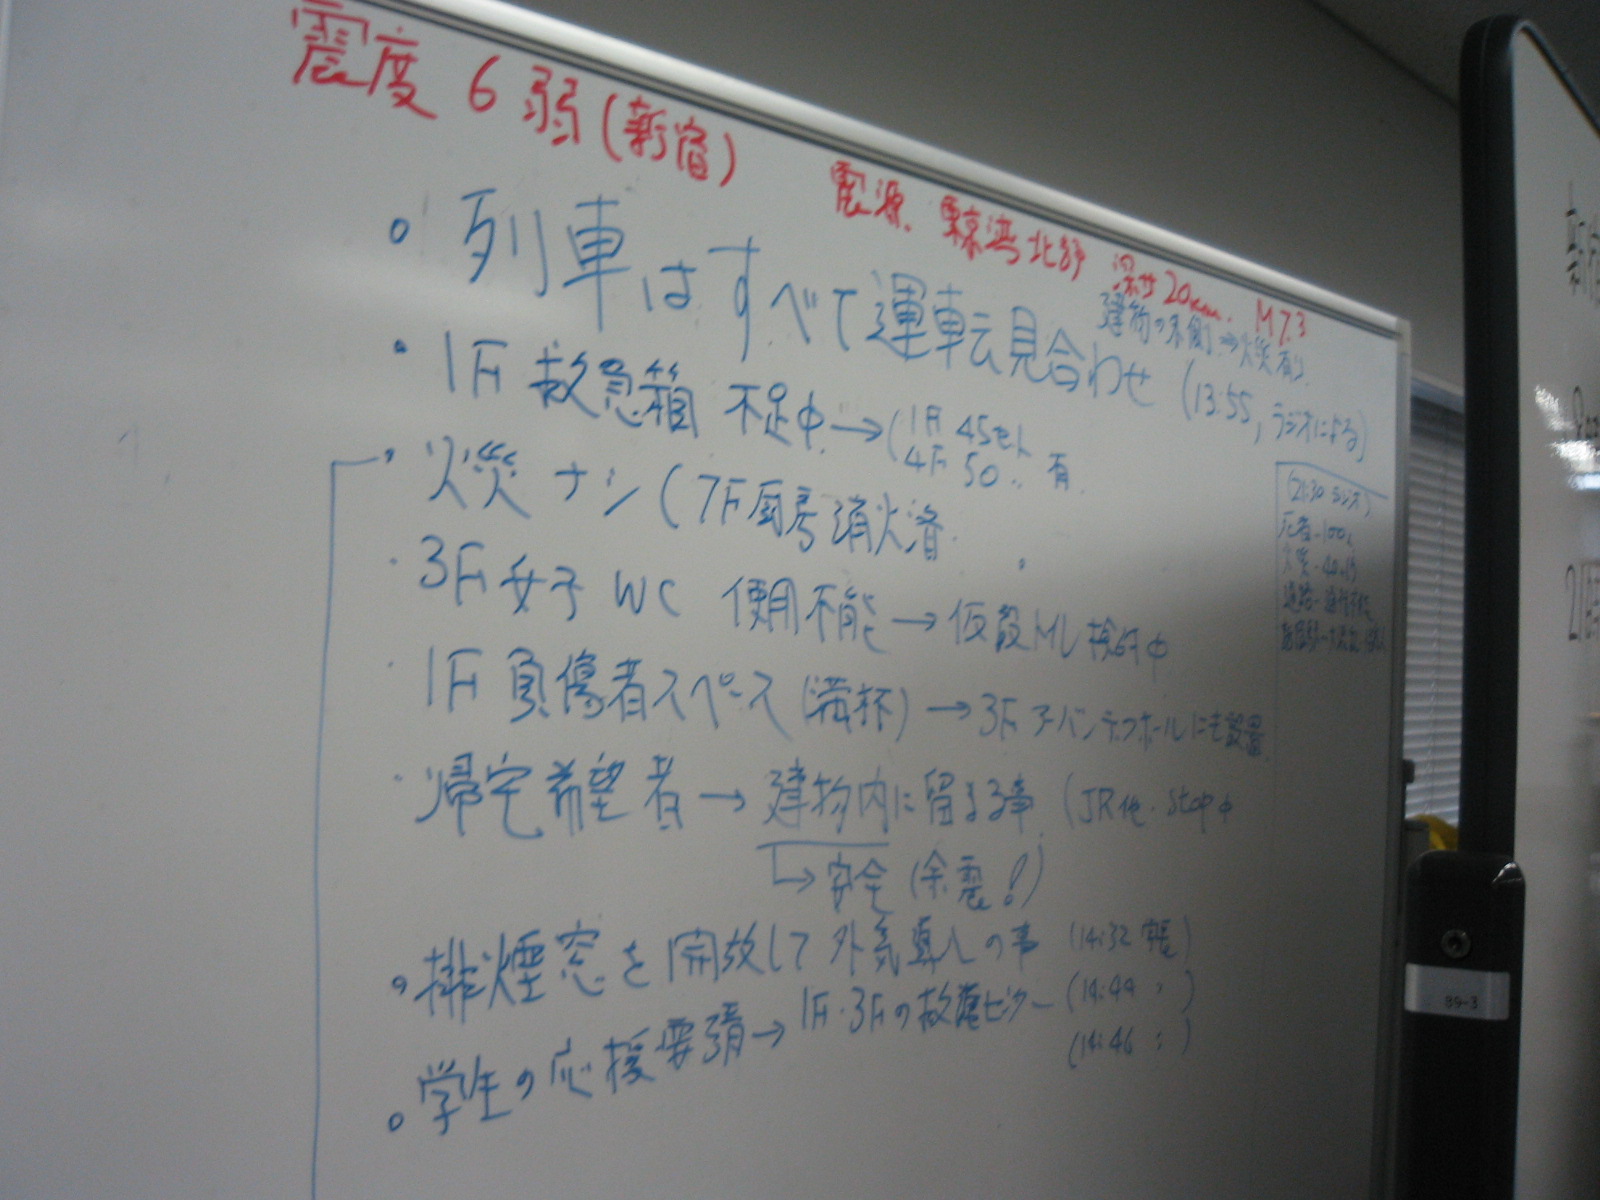 震度 6 弱 (新宿)
震源. 東京湾北部 深サ20km. M7.3
建物の外側→火災有り.
• 列車はすべて運転見合わせ (13:55, ラジオによる)
• 1F 救急箱 不足中→(1F 45セット
4F 50〃 有
• 火災 ナシ (7F厨房消火済.
• 3F女子 WC 使用不能→仮設 検討中
• 1F 負傷者スペース (満杯) → 3F アーバンテックホールにも設置
• 帰宅希望者→建物内に留まる事. (JR他. stop中
↳ 安全 (余震!)
• 排煙窓を開放して外気導入の事 (14:32 )
• 学生の応援要請→1F・3Fの救護センター (14:44 〃 )
(14:46 〃 )
(21:30 ラジオ)
死者-100人
火災-40ヶ所
道路-通行不能
89-3